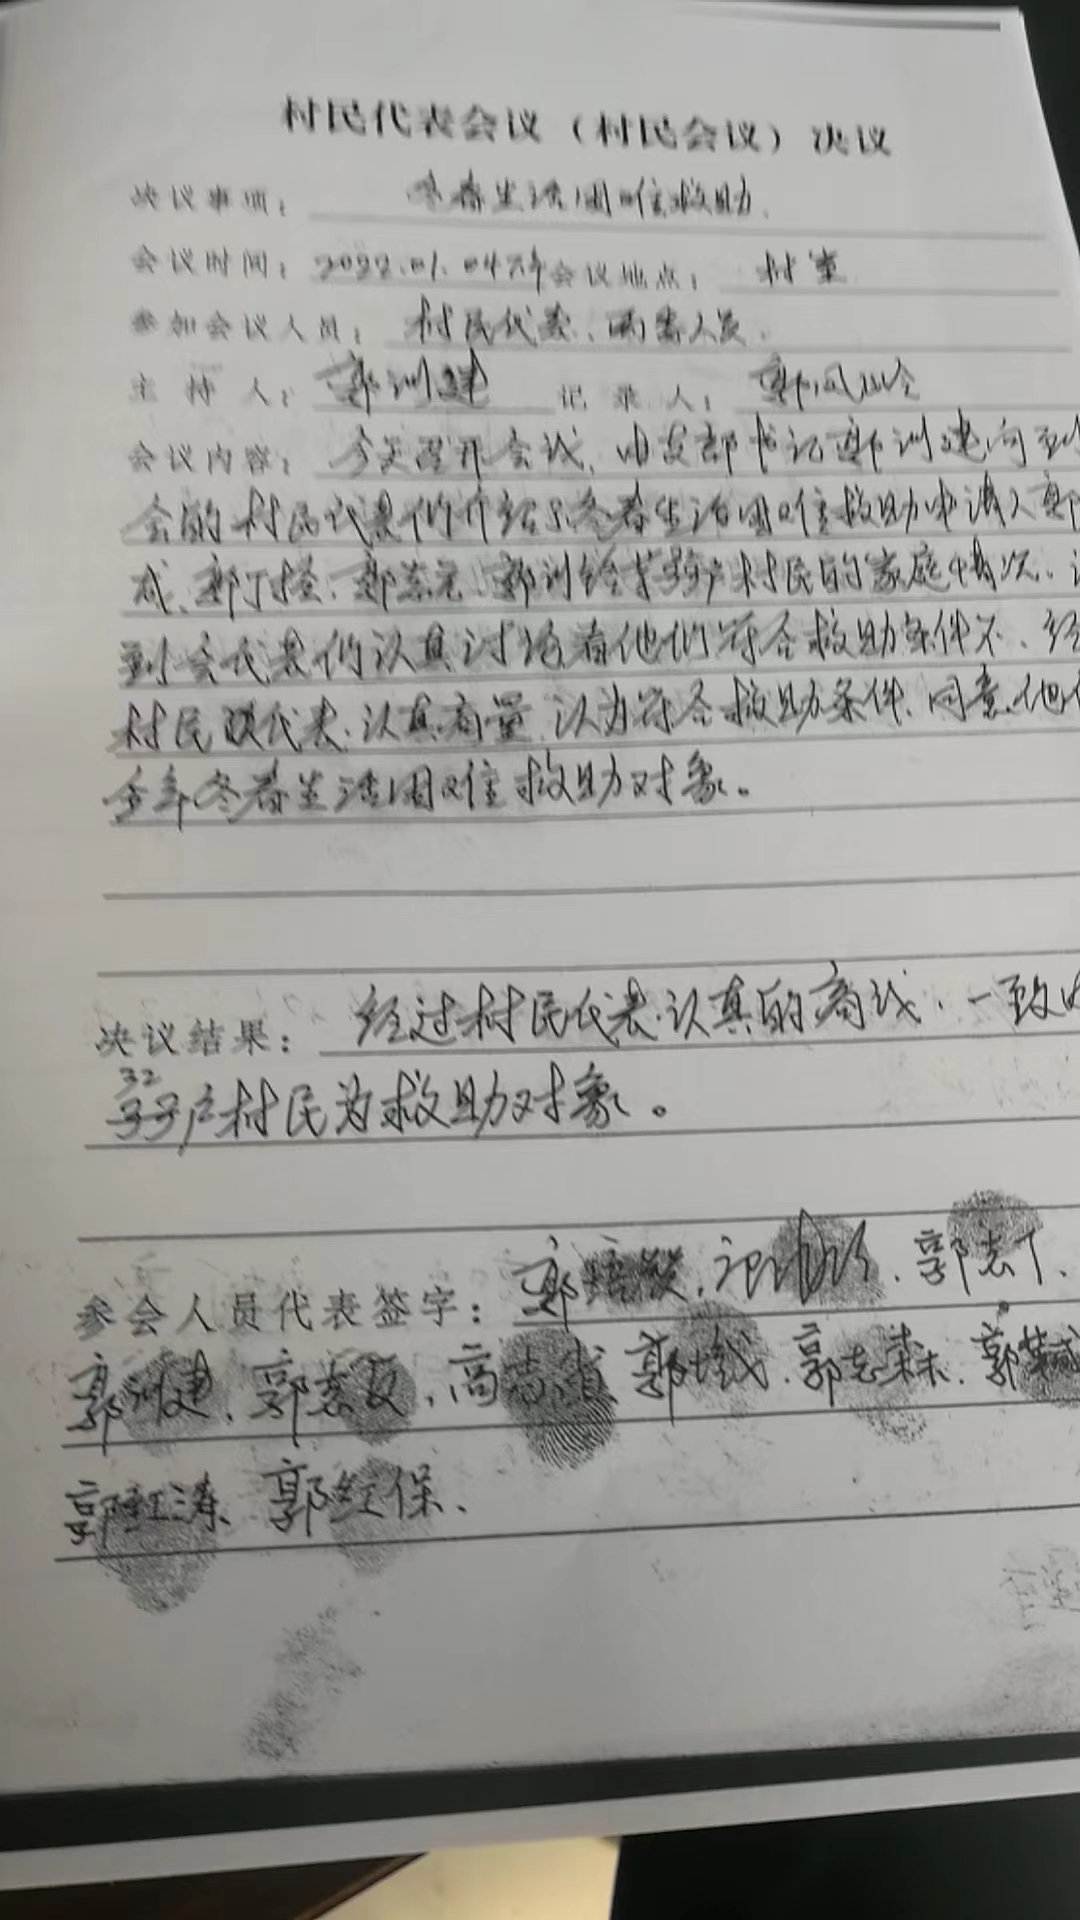 村民代表会议（村民会议）决议
决议事项： 冬春生活困难救助.
会议时间：2022.01.04 会议地点： 村室
参加会议人员： 村民代表、两委人员.
主 持 人： 郭训建 记 录 人： 郭凤
会议内容： 今天召开会议, 由支部书记郭训建向到
会的村民代表们介绍了冬春生活困难救助申请人郭
成、郭、郭志、郭训 户村民的家庭情况.
到会代表们认真讨论看他们符合救助条件不、经
村民代表认真商量 认为符合救助条件、同意他们
今年冬春生活困难救助对象。
决议结果： 经过村民代表认真的商议、一致
32
33户村民为救助对象。
参会人员代表签字： 郭培, 郭志丁、
郭训建、郭志、高志 郭 、郭志森、郭
郭红涛、郭红保、